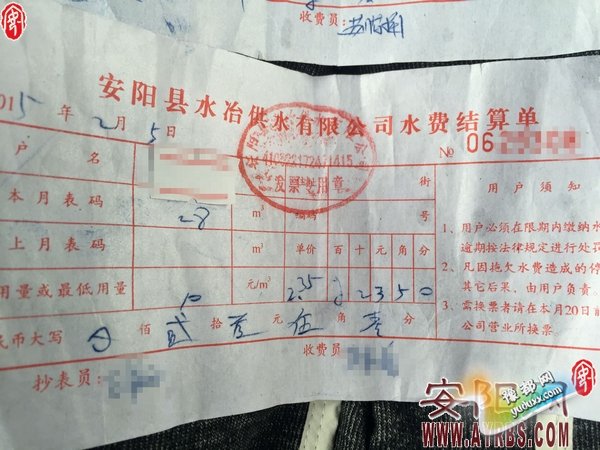 收费员:
安阳县水冶供水有限公司水费结算单
015 年 2 月 5 日
No 06
户 名
街
用 户 须 知
本月表码 28 m³ 号
上月表码 m³ 单价 百 十 元 角 分
用量或最低用量 10 元/m³ 2.35 2 3 5 0
民币大写 0 佰 贰 拾 叁 元 伍 角 零 分
抄表员:
收费员:
发票专用章
1、用户必须在限期内缴纳水
逾期按法律规定进行处罚
2、凡因拖欠水费造成的停
其它后果,由用户负责。
3、需换票者请在本月20日前
公司营业所换票。
安阳
WWW.AYRBS.COM
豫都网
yuduxx.com